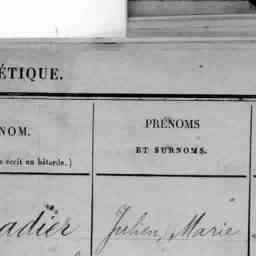 ÉTIQUE.
NOM.
PRÉNOMS
ET SURNOMS.
écrit en bâtarde.)
adier
Julien, Marie